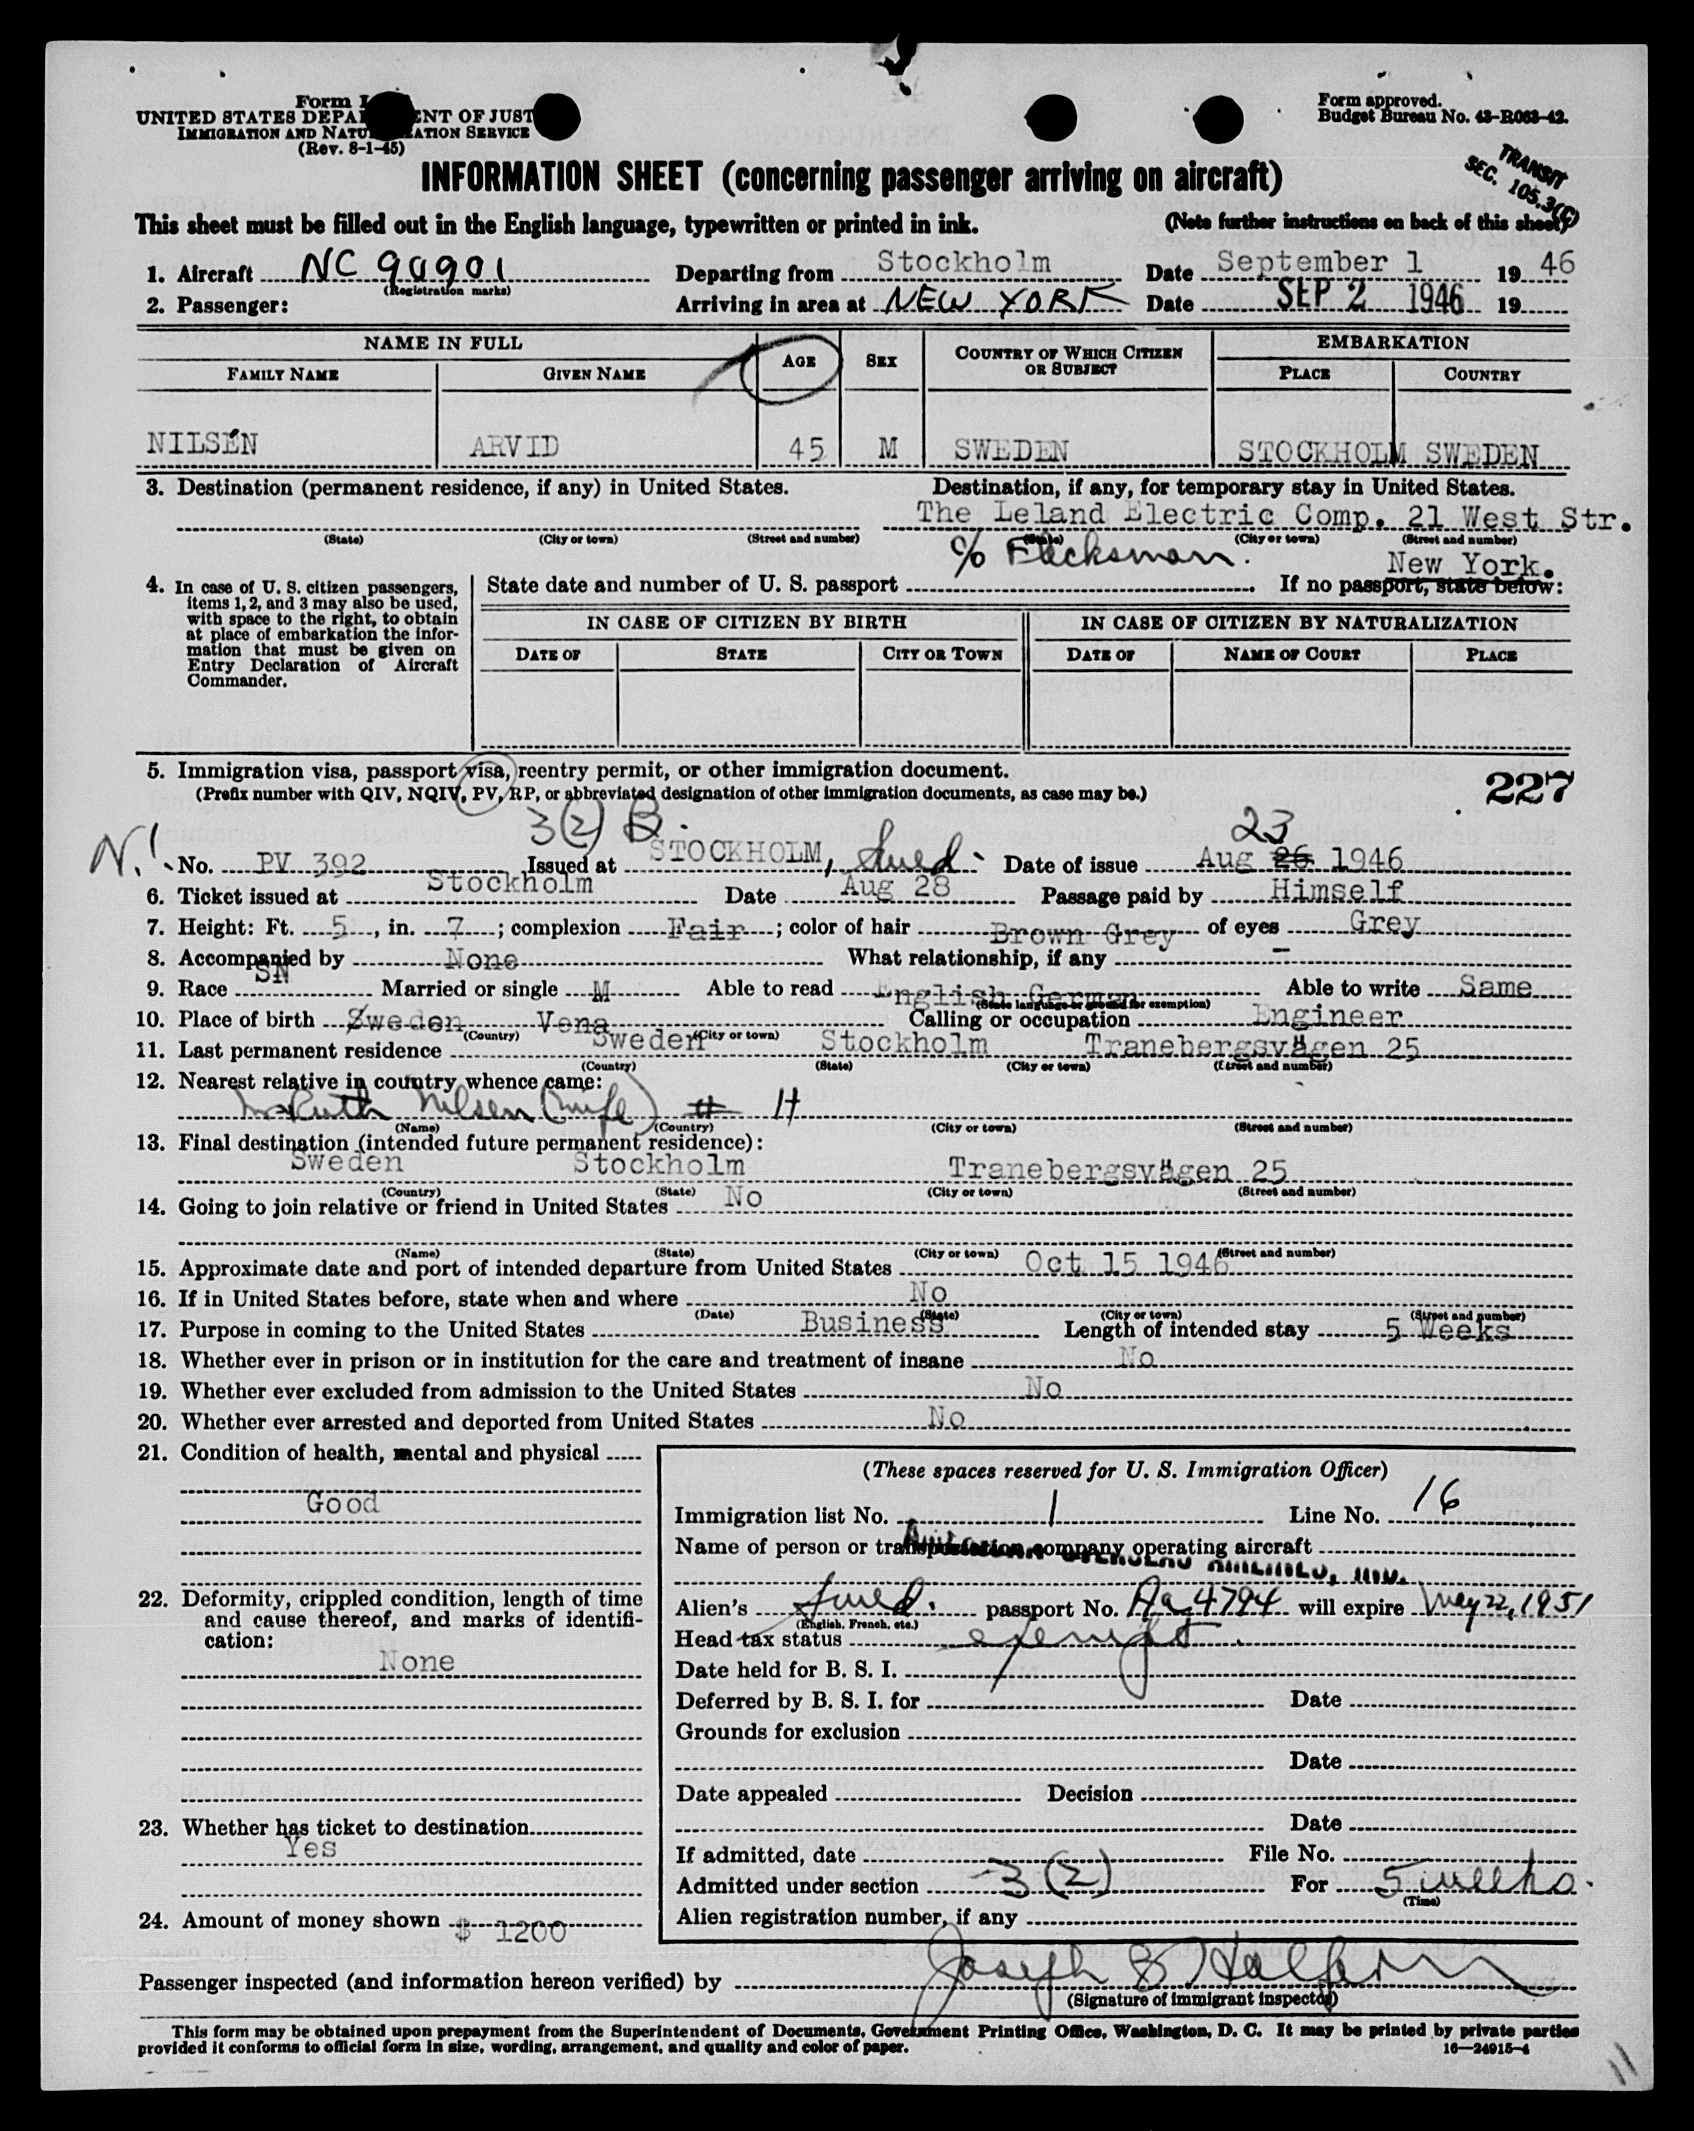 Form I
UNITED STATES DEPA ENT OF JUST
IMMIGRATION AND NATU ATION SERVICE
(Rev. 8-1-45)
Form approved.
Budget Bureau No. 43-R063-42.
TRANSIT
SEC. 105.3(C)
INFORMATION SHEET (concerning passenger arriving on aircraft)
This sheet must be filled out in the English language, typewritten or printed in ink. (Note further instructions on back of this sheet)
1. Aircraft NC 90901 Departing from Stockholm Date September 1 1946
(Registration marks)
2. Passenger: Arriving in area at NEW YORK Date SEP 2 1946 19
NAME IN FULL AGE SEX COUNTRY OF WHICH CITIZEN OR SUBJECT EMBARKATION
FAMILY NAME GIVEN NAME PLACE COUNTRY
NILSÉN ARVID 45 M SWEDEN STOCKHOLM SWEDEN
3. Destination (permanent residence, if any) in United States. Destination, if any, for temporary stay in United States.
The Leland Electric Comp. 21 West Str.
(State) (City or town) (Street and number) (State) (City or town) (Street and number)
c/o New York.
4. In case of U. S. citizen passengers, items 1, 2, and 3 may also be used, with space to the right, to obtain at place of embarkation the information that must be given on Entry Declaration of Aircraft Commander.
State date and number of U. S. passport If no passport, state below:
IN CASE OF CITIZEN BY BIRTH IN CASE OF CITIZEN BY NATURALIZATION
DATE OF STATE CITY OR TOWN DATE OF NAME OF COURT PLACE
5. Immigration visa, passport visa, reentry permit, or other immigration document.
(Prefix number with QIV, NQIV, PV, RP, or abbreviated designation of other immigration documents, as case may be.)
227
3(2) B. 23
N.! No. PV 392 Issued at STOCKHOLM, Swed. Date of issue Aug 26 1946
6. Ticket issued at Stockholm Date Aug 28 Passage paid by Himself
7. Height: Ft. 5, in. 7; complexion Fair; color of hair Brown Grey of eyes Grey
8. Accompanied by None What relationship, if any –
9. Race SN Married or single M Able to read English German Able to write Same
(State language or ground for exemption)
10. Place of birth Sweden Vena Calling or occupation Engineer
(Country) (City or town)
11. Last permanent residence Sweden Stockholm Tranebergsvägen 25
(Country) (State) (City or town) (Street and number)
12. Nearest relative in country whence came:
Mrs Ruth Nilsen (wife) # 11
(Name) (Country) (City or town) (Street and number)
13. Final destination (intended future permanent residence):
Sweden Stockholm Tranebergsvägen 25
(Country) (State) (City or town) (Street and number)
14. Going to join relative or friend in United States No
(Name) (State) (City or town) (Street and number)
15. Approximate date and port of intended departure from United States Oct 15 1946
16. If in United States before, state when and where No
(Date) (State) (City or town) (Street and number)
17. Purpose in coming to the United States Business Length of intended stay 5 Weeks
18. Whether ever in prison or in institution for the care and treatment of insane No
19. Whether ever excluded from admission to the United States No
20. Whether ever arrested and deported from United States No
21. Condition of health, mental and physical
Good
22. Deformity, crippled condition, length of time and cause thereof, and marks of identification:
None
23. Whether has ticket to destination
Yes
24. Amount of money shown $ 1200
(These spaces reserved for U. S. Immigration Officer)
Immigration list No. 1 Line No. 16
Name of person or transportation company operating aircraft
AMERICAN OVERSEAS AIRLINES, INC.
Alien's Swed. passport No. Aa 4794 will expire May 22, 1951
(English, French, etc.)
Head tax status exempt.
Date held for B. S. I.
Deferred by B. S. I. for Date
Grounds for exclusion
Date
Date appealed Decision
Date
If admitted, date File No.
Admitted under section 3(2) For 5 weeks.
(Time)
Alien registration number, if any
Passenger inspected (and information hereon verified) by Joseph S Halfern
(Signature of immigrant inspector)
This form may be obtained upon prepayment from the Superintendent of Documents, Government Printing Office, Washington, D. C. It may be printed by private parties
provided it conforms to official form in size, wording, arrangement, and quality and color of paper. 16—24915-4
11